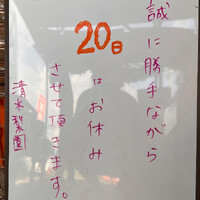 誠に勝手ながら
20日
はお休み
させて頂きます。
清水梨園